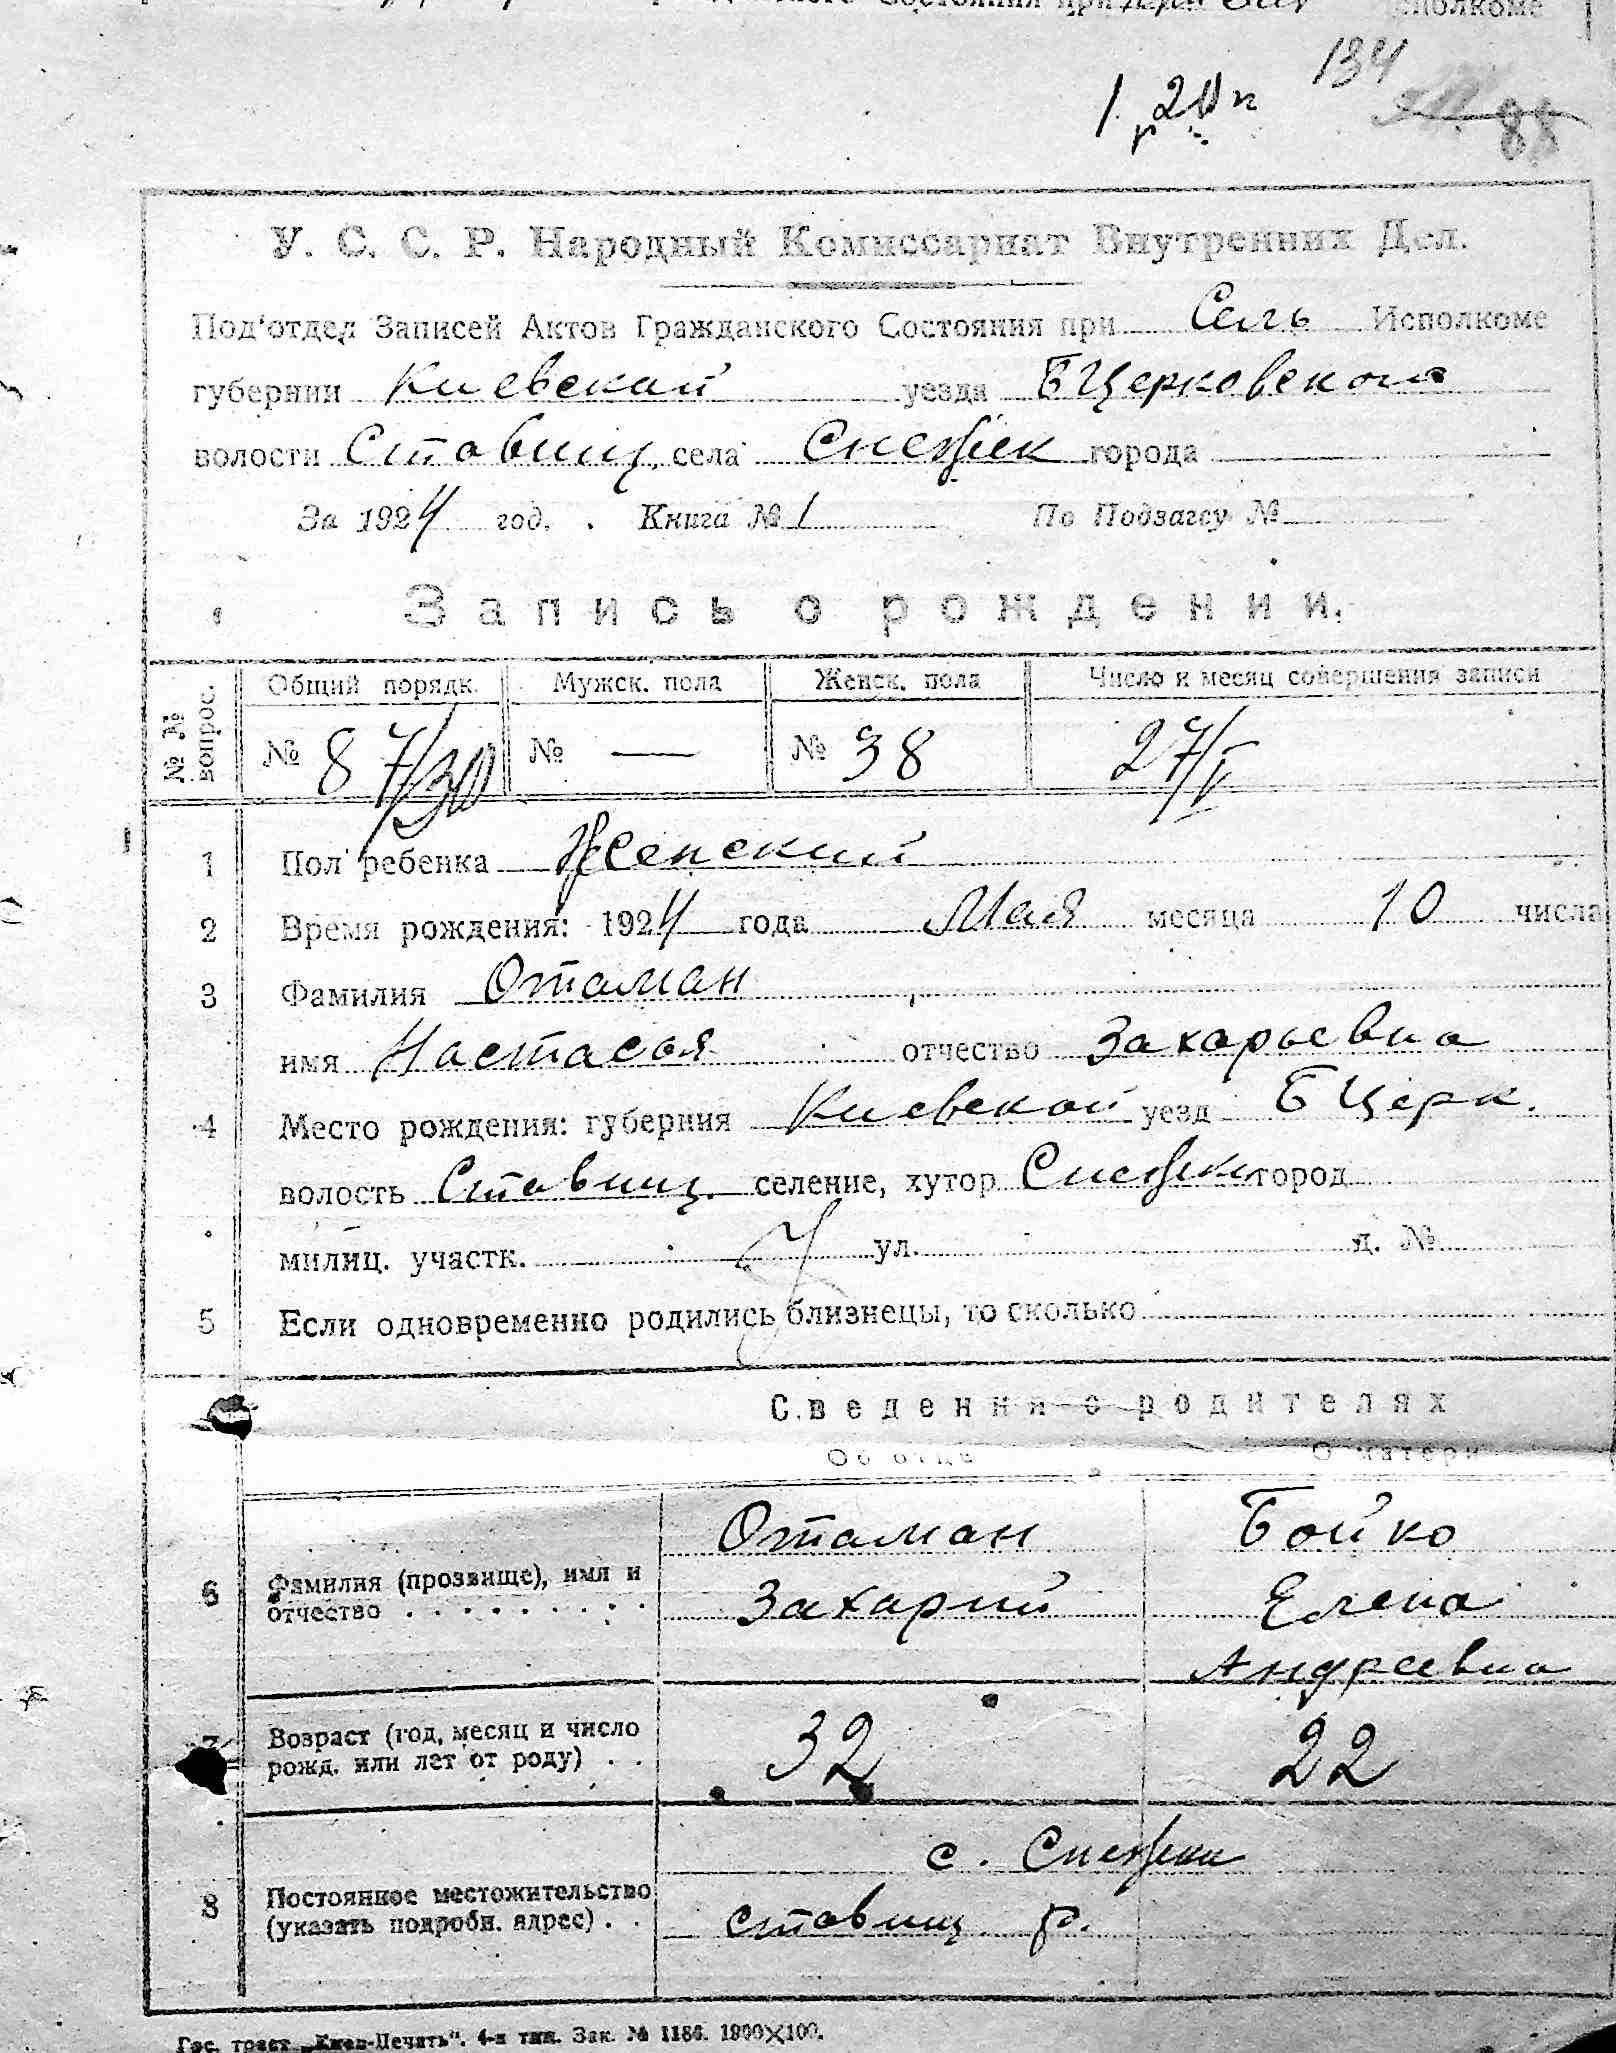 Состояния при Исполкоме
134
1 р 20 к
88
У. С. С. Р. Народный Комиссариат Внутренних Дел.
Под'отдел Записей Актов Гражданского Состояния при Сель Исполкоме
губернии Киевской уезда БЦерковского
волости Ставищ. села Снежек города
За 1924 год. Книга № 1 По Подзагсу №
Запись о рождении.
№№ вопрос. Общий порядк. Мужск. пола Женск. пола Число и месяц совершения записи
№ 87/30 № — № 38 27/V
1 Пол ребенка Женский
2 Время рождения: 1924 года Мая месяца 10 числа
3 Фамилия Отаман
имя Настасья отчество Захарьевна
4 Место рождения: губерния Киевской уезд БЦерк.
волость Ставищ. селение, хутор Снежки город
милиц. участк. ул. д. №
5 Если одновременно родились близнецы, то сколько
Сведения о родителях
Об отце О матери
Отаман Бойко
6 Фамилия (прозвище), имя и
отчество Захарий Елена
Андреевна
7 Возраст (год, месяц и число
рожд. или лет от роду) 32 22
с. Снежки
8 Постоянное местожительство
(указать подробн. адрес) Ставищ р.
Гос. трест „Киев-Печать". 4-я тип. Зак. № 1186. 1900×100.